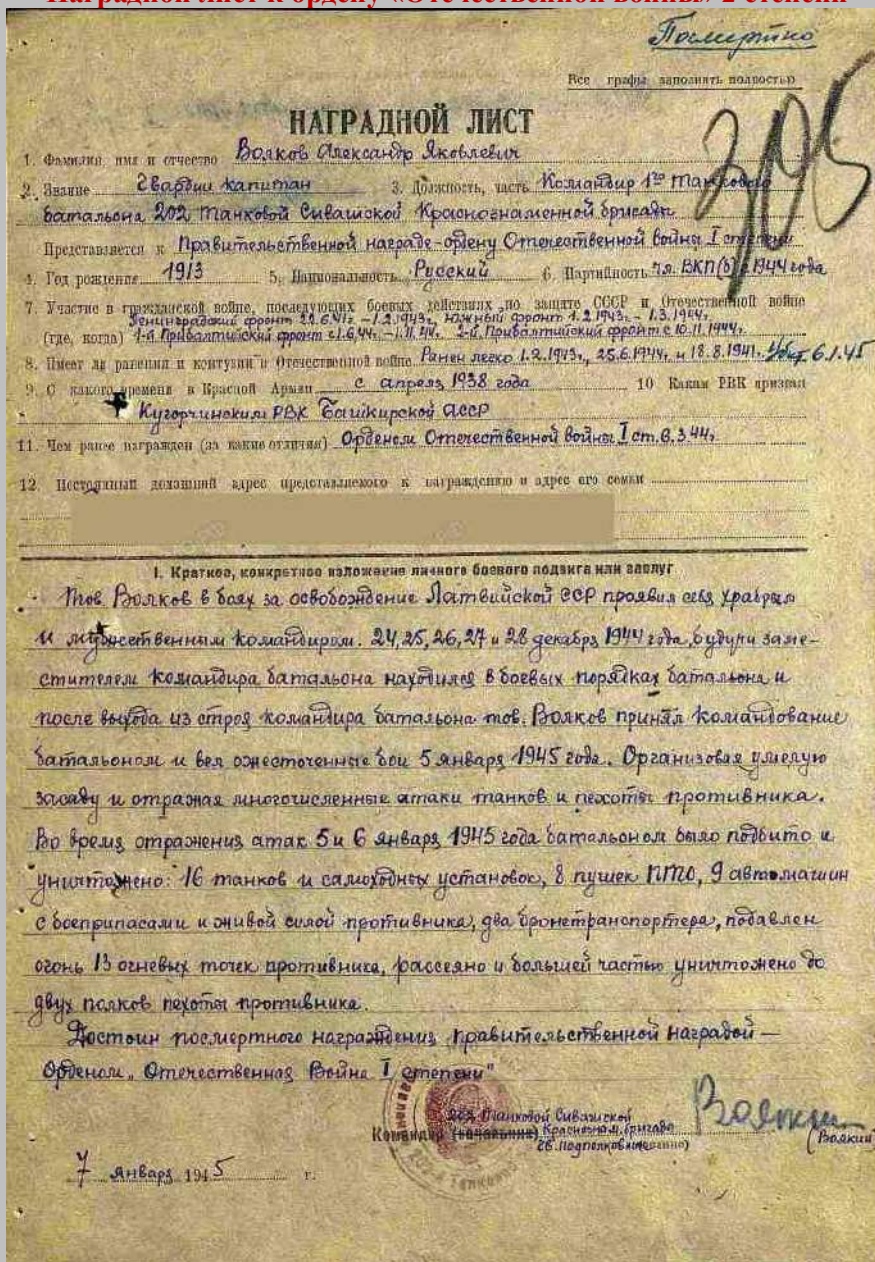 Наградной лист к ордену «Отечественной войны» 2 степени
Посмертно
Все графы заполнять полностью
НАГРАДНОЙ ЛИСТ
1. Фамилия, имя и отчество Волков Александр Яковлевич
2. Звание Гвардии капитан 3. Должность, часть Командир 1го танкового
батальона 202 танковой Сивашской Краснознаменной бригады
Представляется к Правительственной награде-ордену Отечественной войны I степени
4. Год рождения 1913 5. Национальность Русский 6. Партийность чл. ВКП(б) с 1944 года
7. Участие в гражданской войне, последующих боевых действиях по защите СССР и Отечественной войне
Ленинградский фронт 22.6.41г. – 1.2.1943г. Южный фронт 1.2.1943г. – 1.3.1944г.
(где, когда) 1-й Прибалтийский фронт с 1.6.44г. – 1.11.44г. 2-й Прибалтийский фронт с 10.11.1944г.
8. Имеет ли ранения и контузии в Отечественной войне Ранен легко 1.2.1943г., 25.6.1944г. и 18.8.1941. Убит 6.1.45
9. С какого времени в Красной Армии с апреля 1938 года 10 Каким РВК призван
Кугорчинским РВК Башкирской АССР
11. Чем ранее награжден (за какие отличия) Орденом Отечественной войны I ст. 6.3.44г.
12. Постоянный домашний адрес представляемого к награждению и адрес его семьи
I. Краткое, конкретное изложение личного боевого подвига или заслуг
Тов. Волков в боях за освобождение Латвийской ССР проявил себя храбрым
и мужественным командиром. 24, 25, 26, 27 и 28 декабря 1944 года, будучи заме-
стителем командира батальона находился в боевых порядках батальона и
после выхода из строя командира батальона тов. Волков принял командование
батальоном и вел ожесточенные бои 5 января 1945 года. Организовав умелую
засаду и отражая многочисленные атаки танков и пехоты противника.
Во время отражения атак 5 и 6 января 1945 года батальоном было подбито и
уничтожено: 16 танков и самоходных установок, 8 пушек ПТО, 9 автомашин
с боеприпасами и живой силой противника, два бронетранспортера, подавлен
огонь 13 огневых точек противника, рассеяно и большей частью уничтожено до
двух полков пехоты противника.
Достоин посмертного награждения правительственной наградой –
Орденом „Отечественная Война I степени"
202 Танковой Сивашской
Командир (начальник) Краснознам. бригады
Гв. Подполковник
(Воякин)
7 января 1945 г.